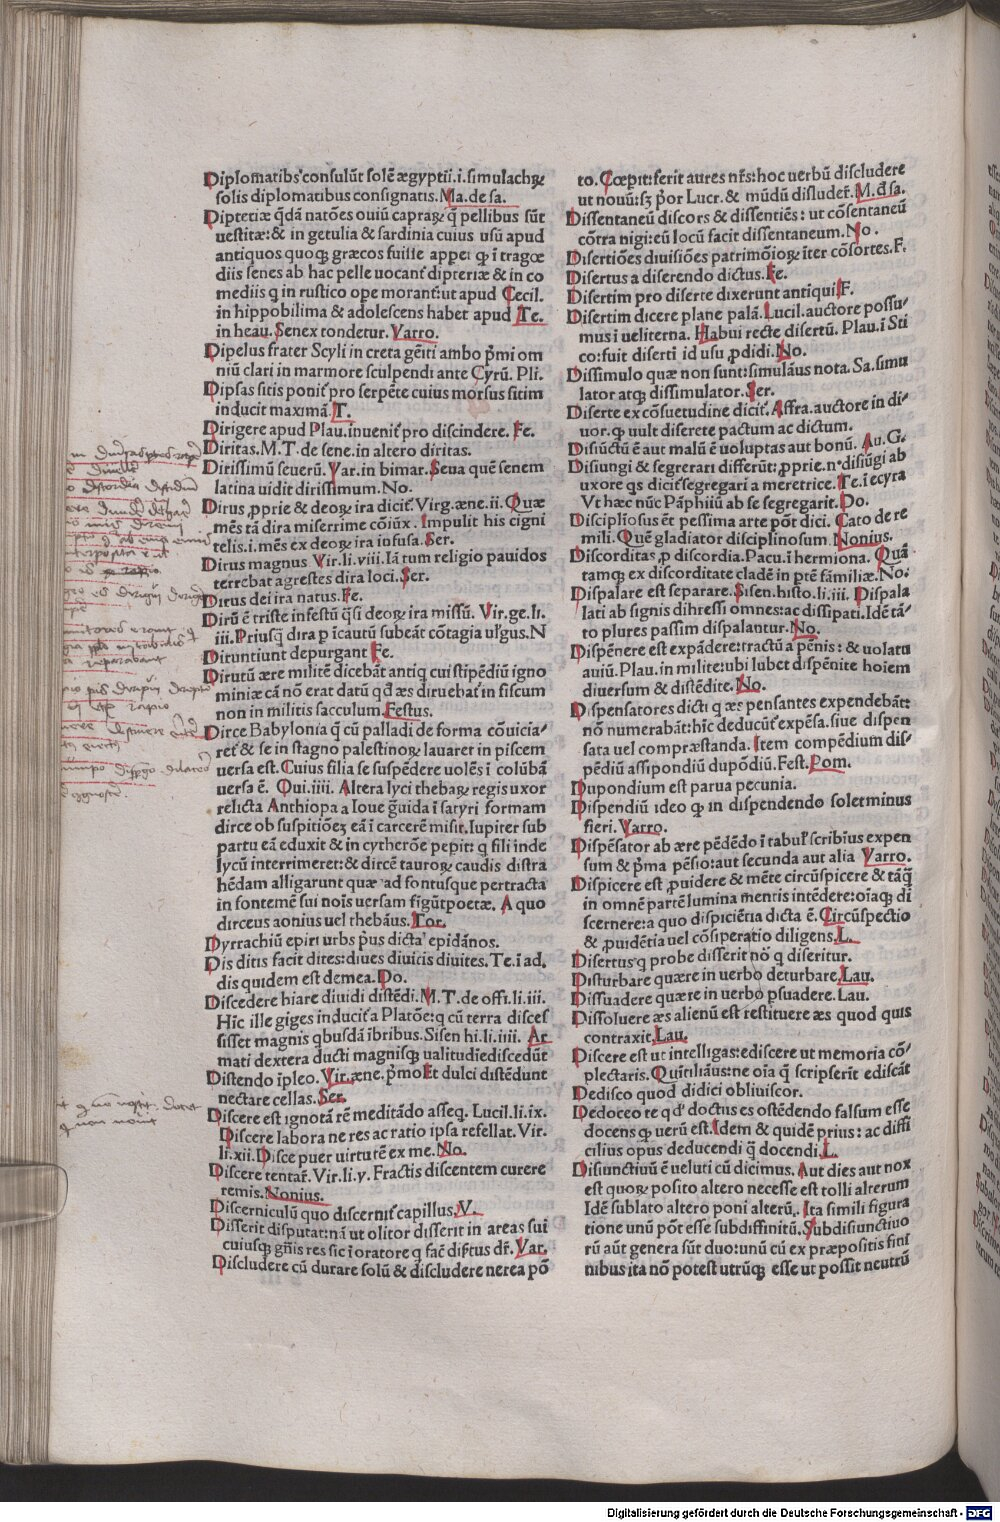 Diplomatibꝰ consulūt solē ægyptii.i.simulachꝝ
solis diplomatibus consignatis.Ma.de sa.
Dipteriæ q̄dā natōes ouiū capraꝝ q̄ pellibus sūt
uestitæ:& in getulia & sardinia cuius usū apud
antiquos quoqꝫ græcos fuisse appet qꝫ ī tragœ
diis senes ab hac pelle uocant̄ dipteriæ & in co
mediis q in rustico ope morant̄:ut apud Cecil.
in hippobilima & adolescens habet apud Te.
in heau.Senex tondetur.Varro.
Dipelus frater Scyli in creta gēiti ambo p̄mi om
niū clari in marmore sculpendi ante Cyrū. Pli.
Dipsas sitis ponit̄ pro serpēte cuius morsus sitim
inducit maximā.T.
Dirigere apud Plau.inuenit̄ pro discindere. Fe.
Diritas.M.T.de sene.in altero diritas.
Dirissimū seuerū.Var.in bimar.Seua quē senem
latina uidit dirissimum.No.
Dirus ꝓprie & deoꝝ ira dicit̄.Virg.æne.ii.Quæ
mēs tā dira miserrime cōiux.Impulit his cigni
telis.i.mēs ex deoꝝ ira infusa.Ser.
Ditus magnus Vir.li.viii.Iā tum religio pauidos
terrebat agrestes dira loci.Ser.
Dirus dei ira natus.Fe.
Dirū ē triste infestū q̄si deoꝝ ira missū. Vir.ge.li.
iii.Priusq̄ dira p īcautū subeāt cōtagia ul̄gus.N
Dituntiunt depurgant Fe.
Dirutū ære militē dicebāt antiq cui stipēdiū igno
miniæ cā nō erat datū qd̄ æs diruebat̄ in fiscum
non in militis sacculum.Festus.
Dirce Babylonia q̄ cū palladi de forma cōuicia⸗
ret̄ & se in stagno palestinoꝝ lauaret in piscem
uersa est.Cuius filia se suspēdere uolēs ī colūbā
uersa ē. Oui.iiii.Altera lyci thebaꝝ regis uxor
relicta Anthiopa a Ioue ḡuida ī satyri formam
dirce ob suspitiōeꝫ eā ī carcerē misit.Iupiter sub
partu eā eduxit & in cytherōe pepit: q filī inde
lycū interrimeret:& dircē tauroꝝ caudis distra
hēdam alligarunt quæ ad fontusque pertracta
in fontemē sui nois uersam figūt poetæ. A quo
dirceus aonius uel thebāus.Tor.
Dyrrachiū epiri urbs p̄us dicta epidānos.
Dis ditis facit dites:diues diuicis diuites.Te.ī ad.
dis quidem est demea.Do.
Discedere hiare diuidi distēdi.M.T.de offi.li.iii.
Hic ille giges inducit̄ a Platōe:q cū terra disces
sisset magnis qbusdā ībribus.Sisen hi.li.iiii. Ar
mati dextera ducti magnisqꝫ ualitudie discedūt
Distendo īpleo.Vir.æne.p̄mo Et dulci distēdunt
nectare cellas.Ser.
Discere est ignotā rē meditādo asseq. Lucil.li.ix.
Discere labora ne res ac ratio ipsa refellat.Vir.
li.xii.Disce puer uirtutē ex me.No.
Discere tentar̄.Vir.li.y. Fractis discentem curere
remis.Nonius.
Discerniculū quo discernit̄ capillus.V.
Disserit disputat:nā ut olitor disserit in areas sui
cuiusqꝫ gn̄is res sic ī oratore q fac̄ disertus dr̄.Var.
Discludere cū durare solū & discludere nerea pō
to.Cœpit:ferit aures nr̄s:hoc uerbū discludere
ut nouū:sꝫ p̄or Lucr.& mūdū disluder̄.M.d̄ sa.
Dissentaneū discors & dissentiēs: ut cōsentaneū
cōtra nigi:eū locū facit dissentaneum.No.
Disertiōes diuisiōes patrimōioꝝ īter cōsortes.F.
Disertus a diserendo dictus.Fe.
Disertim pro diserte dixerunt antiqui.F.
Disertim dicere plane palā.Lucil.auctore possu⸗
mus ī ueliterna.Habui recte disertū. Plau.ī Sti
co:fuit diserti id usu ꝓdidi.No.
Dissimulo quæ non sunt:simulāus nota. Sa.simu
lator atqꝫ dissimulator.Ser.
Diserte ex cōsuetudine dicit̄.Affra.auctore in di⸗
uor.qꝫ uult diserete pactum ac dictum.
Disiūctū ē aut malū ē uoluptas aut bonū. Au.G.
Disiungi & segrerari differūt:ꝓprie.n.disiūgi ab
uxore qs dicit̄ segregari a meretrice.Te.ī ecyra
Vt hæc nūc Pāphiiū ab se segregarit.Do.
Disciplīosus ēt pessima arte pōt dici.Cato de re
mili. Quē gladiator disciplinosum Nonius.
Discorditas ꝓ discordia.Pacu.ī hermiona. Quā
tamqꝫ ex discorditate cladē in ptē fāmiliæ.No.
Dispalare est separare.Sisen.histo.li.iii.Dispala
lati ab signis dihressi omnes:ac dissipati.Idē tā⸗
to plures passim dispalantur.No.
Dispēnere est expādere:tractū a pēnis: & uolatu
auiū.Plau.in milite:ubi lubet dispēnite hoīem
diuersum & distēdite.No.
Dispensatores dicti q æs pensantes expendebāt:
nō numerabāt:hīc deducūt̄ expēsa.siue dispen
sata uel compræstanda.Item compēdium dis⸗
pēdiū assipondiū dupōdiū.Fest.Pom.
Dupondium est parua pecunia.
Dispendiū ideo qꝫ in dispendendo solet minus
fieri.Varro.
Dispēsator ab ære pēdēdo ī tabul̄ scribīus expen
sum & p̄ma pēsio:aut secunda aut alia Varro.
Dispicere est ꝓuidere & mēte circūspicere & tāq̄
in omnē partē lumina mentis intēdere:oīaqꝫ dī
scernere:a quo dispiciētia dicta ē.Circūspectio
& ꝓuidētia uel cōsiperatio diligens.L.
Disertus q probe disserit nō q diseritur.
Disturbare quære in uerbo deturbare.Lau.
Dissuadere quære in uerbo psuadere. Lau.
Dissoluere æs alienū est restituere æs quod quis
contraxit.Lau.
Discere est ut intelligas:ediscere ut memoria cō⸗
plectaris. Quītiliāus:ne oīa q̄ scripserīt ediscāt
Dedisco quod didici obliuiscor.
Dedoceo te qd̓ doctus es ostēdendo falsum esse
docens qꝫ uerū est.Idem & quidē prius: ac diffi
cilius opus deducendi q̄ docendi.L.
Disiunctiuū ē ueluti cū dicimus. Aut dies aut nox
est quoꝝ posito altero necesse est tolli alterum
Idē sublato altero poni alterū. Ita simili figura
tione unū pōt esse subdiffinitū.Subdisiunctiuo
rū aūt genera sūt duo:unū cū ex præpositis fini
nibus ita nō potest utrūqꝫ esse ut possit neutrū
Digitalisierung gefördert durch die Deutsche Forschungsgemeinschaft - DFG